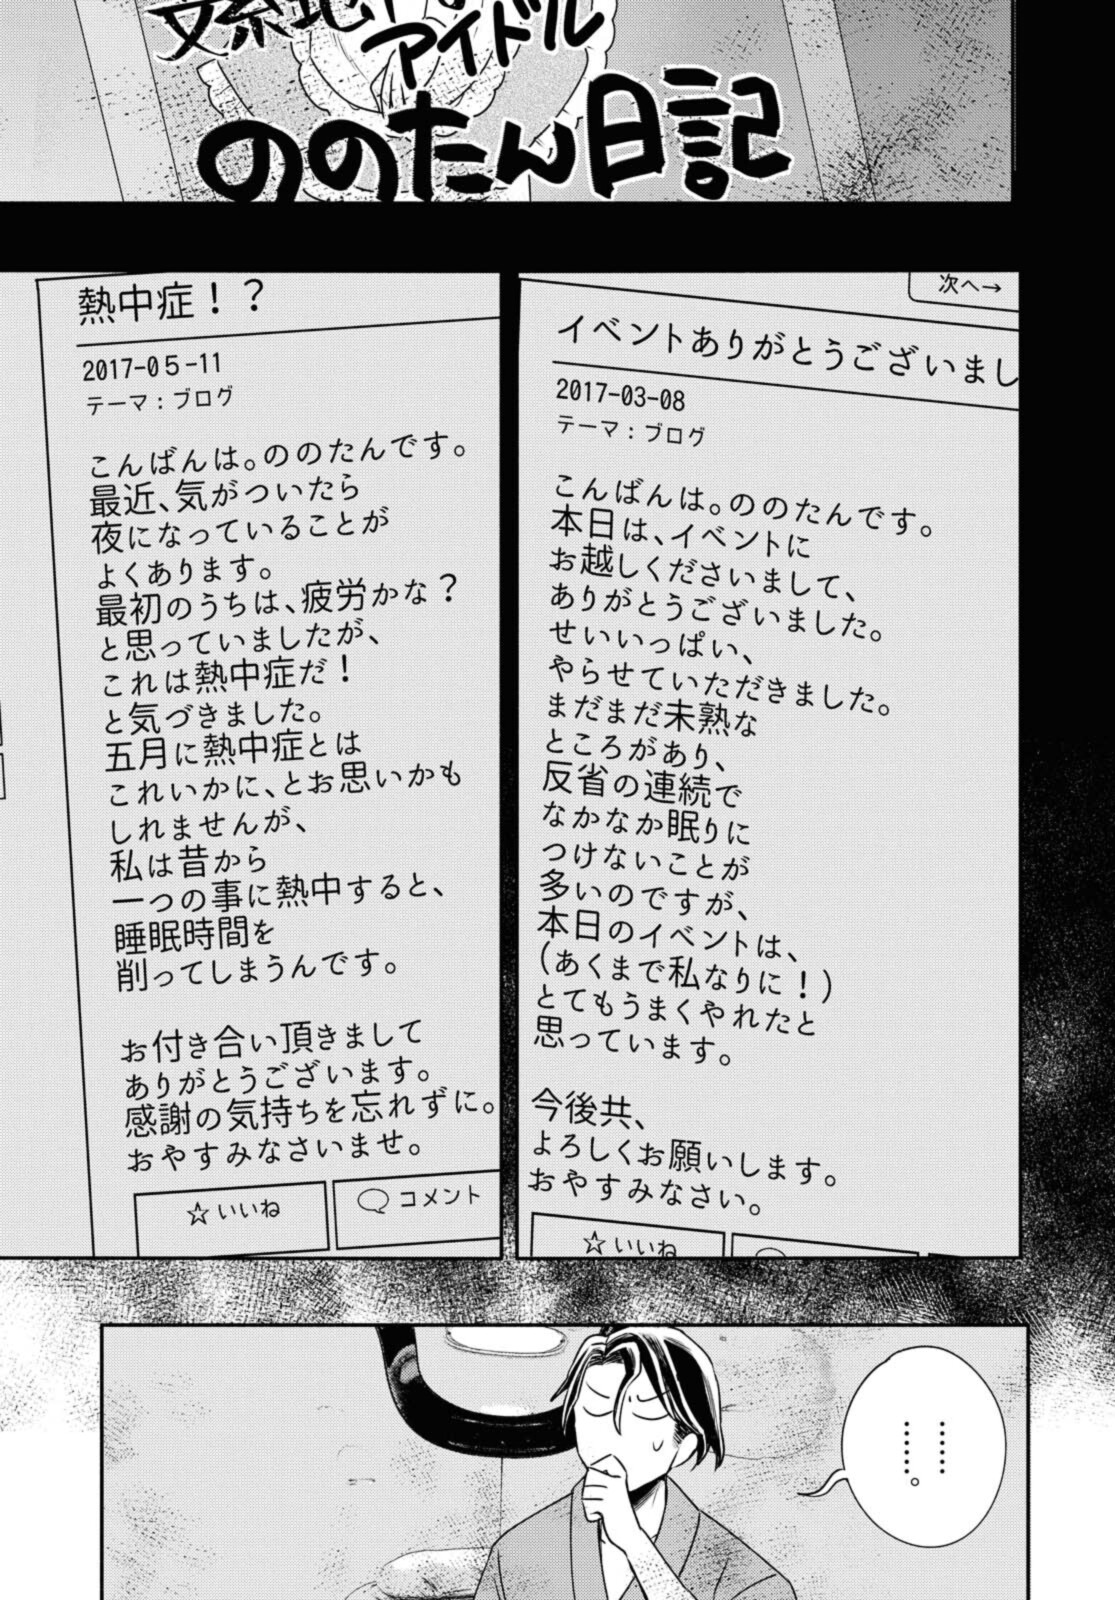 文系地下アイドル
ののたん日記
次へ→
イベントありがとうございまし
2017-03-08
テーマ：ブログ
こんばんは。ののたんです。
本日は、イベントに
お越しくださいまして、
ありがとうございました。
せいいっぱい、
やらせていただきました。
まだまだ未熟な
ところがあり、
反省の連続で
なかなか眠りに
つけないことが
多いのですが、
本日のイベントは、
(あくまで私なりに！)
とてもうまくやれたと
思っています。
今後共、
よろしくお願いします。
おやすみなさい。
☆いいね
熱中症！？
2017-05-11
テーマ：ブログ
こんばんは。ののたんです。
最近、気がついたら
夜になっていることが
よくあります。
最初のうちは、疲労かな？
と思っていましたが、
これは熱中症だ！
と気づきました。
五月に熱中症とは
これいかに、とお思いかも
しれませんが、
私は昔から
一つの事に熱中すると、
睡眠時間を
削ってしまうんです。
お付き合い頂きまして
ありがとうございます。
感謝の気持ちを忘れずに。
おやすみなさいませ。
☆いいね
コメント
………
………。